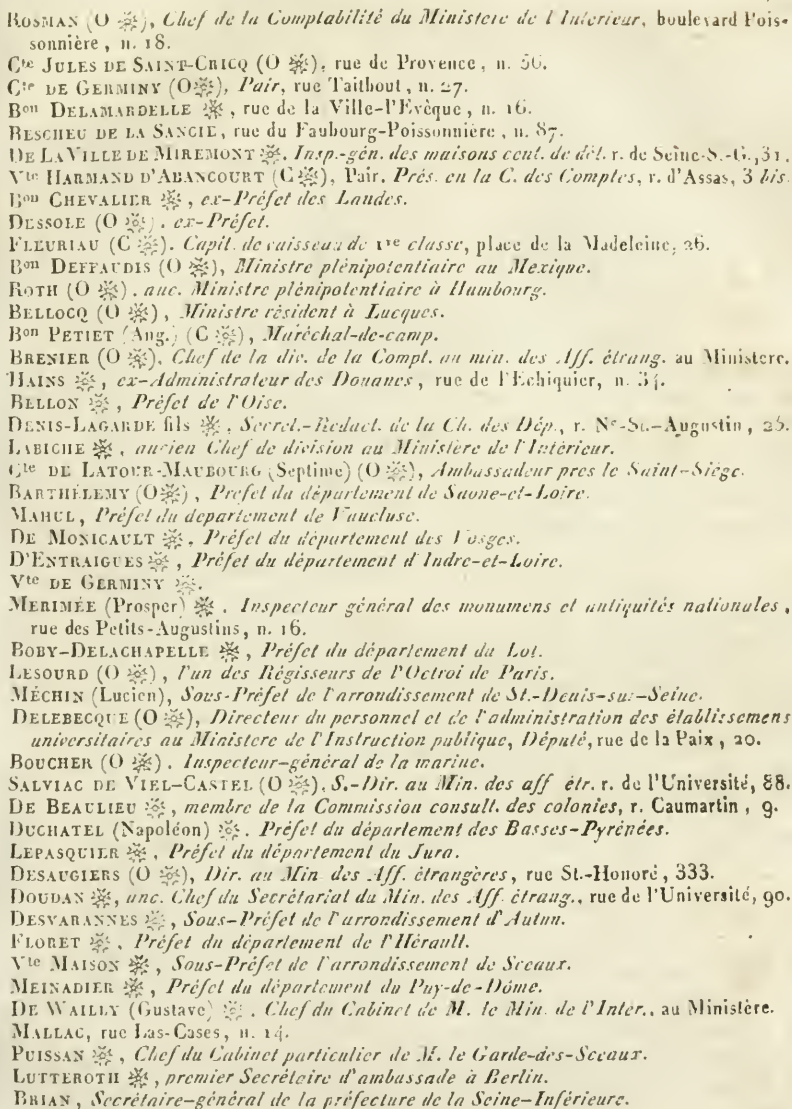 ROSMAN (O ※), Chef de la Comptabilité du Ministère de l'Intérieur, boulevard Pois-
sonnière, n. 18.
Cte JULES DE SAINT-CRICQ (O ※), rue de Provence, n. 56.
Cte DE GERMINY (O※), Pair, rue Taitbout, n. 27.
Bon DELAMARDELLE ※, rue de la Ville-l'Evêque, n. 16.
BESCHEU DE LA SANCIE, rue du Faubourg-Poissonnière, n. 87.
DE LAVILLE DE MIREMONT ※. Insp.-gén. des maisons cent. de dét. r. de Seine-S.-G., 31.
Vte HARMAND D'ABANCOURT (C※), Pair. Prés. en la C. des Comptes, r. d'Assas, 3 bis.
Bon CHEVALIER ※, ex-Préfet des Landes.
DESSOLE (O ※). ex-Préfet.
FLEURIAU (C ※). Capit. de vaisseau de 1re classe, place de la Madeleine, 26.
Bon DEFFAUDIS (O ※), Ministre plénipotentiaire au Mexique.
ROTH (O ※). anc. Ministre plénipotentiaire à Hambourg.
BELLOCQ (O ※), Ministre résident à Lucques.
Bon PETIET (Aug.) (C ※), Maréchal-de-camp.
BRENIER (O ※), Chef de la div. de la Compt. au min. des Aff. étrang. au Ministère.
HAINS ※, ex-Administrateur des Douanes, rue de l'Echiquier, n. 34.
BELLON ※, Préfet de l'Oise.
DENIS-LAGARDE fils ※. Secrét.-Rédact. de la Ch. des Dép., r. Ne-St.-Augustin, 25.
LABICHE ※, ancien Chef de division au Ministère de l'Intérieur.
Cte DE LATOUR-MAUBOURG (Septime) (O ※), Ambassadeur près le Saint-Siège.
BARTHÉLEMY (O※), Préfet du département de Saone-et-Loire.
MAHUL, Préfet du département de Vaucluse.
DE MONICAULT ※, Préfet du département des Vosges.
D'ENTRAIGUES ※, Préfet du département d'Indre-et-Loire.
Vte DE GERMINY ※.
MERIMÉE (Prosper) ※. Inspecteur général des monumens et antiquités nationales,
rue des Petits-Augustins, n. 16.
BOBY-DELACHAPELLE ※, Préfet du département du Lot.
LESOURD (O ※), l'un des Régisseurs de l'Octroi de Paris.
MÉCHIN (Lucien), Sous-Préfet de l'arrondissement de St.-Denis-sur-Seine.
DELEBECQUE (O ※), Directeur du personnel et de l'administration des établissemens
universitaires au Ministère de l'Instruction publique, Député, rue de la Paix, 20.
BOUCHER (O ※). Inspecteur-général de la marine.
SALVIAC DE VIEL-CASTEL (O ※), S.-Dir. au Min. des aff étr. r. de l'Université, 88.
DE BEAULIEU ※, membre de la Commission consult. des colonies, r. Caumartin, 9.
DUCHATEL (Napoléon) ※. Préfet du département des Basses-Pyrénées.
LEPASQUIER ※, Préfet du département du Jura.
DESAUGIERS (O ※), Dir. au Min des Aff. étrangères, rue St.-Honoré, 333.
DOUDAN ※, anc. Chef du Secrétariat du Min. des Aff. étrang., rue de l'Université, 90.
DESVARANNES ※, Sous-Préfet de l'arrondissement d'Autun.
FLORET ※, Préfet du département de l'Hérault.
Vte MAISON ※, Sous-Préfet de l'arrondissement de Sceaux.
MEINADIER ※, Préfet du département du Puy-de-Dôme.
DE WAILLY (Gustave) ※. Chef du Cabinet de M. le Min. de l'Inter., au Ministère.
MALLAC, rue Las-Cases, n. 14.
PUISSAN ※, Chef du Cabinet particulier de M. le Garde-des-Sceaux.
LUTTEROTH ※, premier Secrétaire d'ambassade à Berlin.
BRIAN, Secrétaire-général de la préfecture de la Seine-Inférieure.